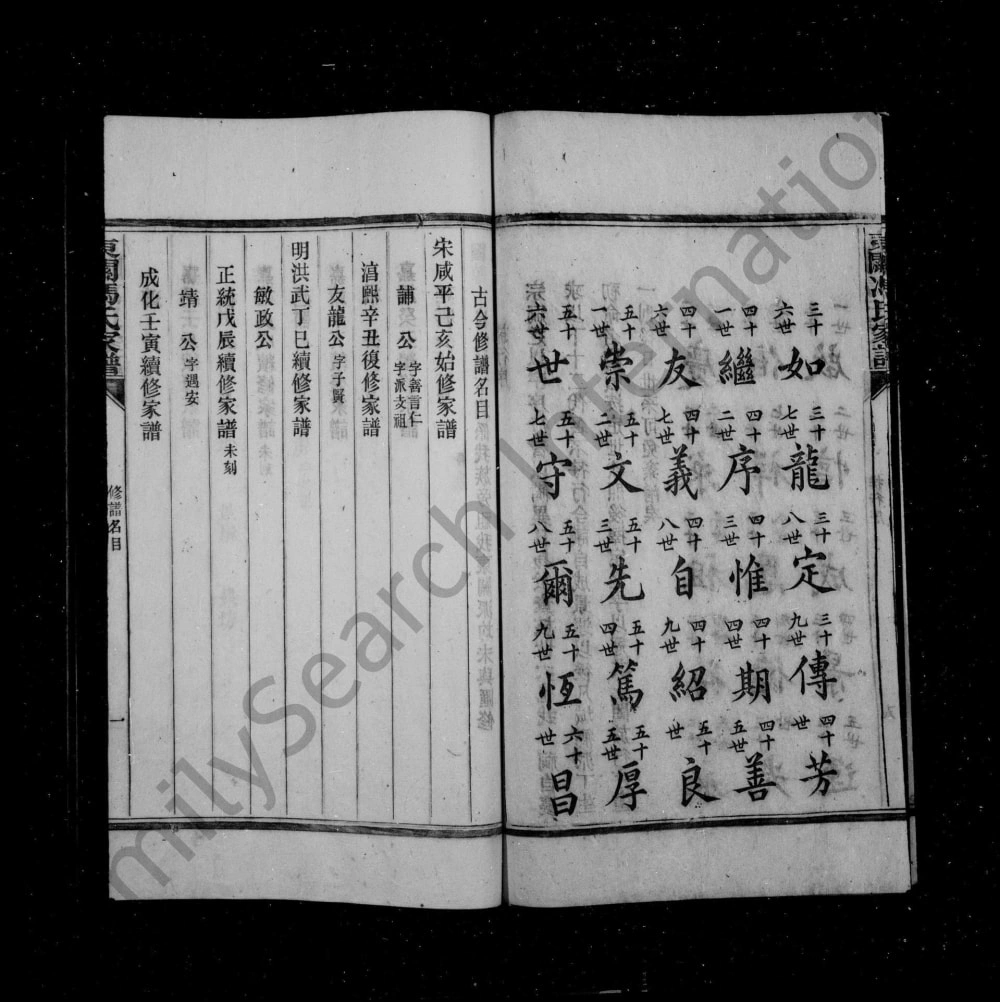 東關馮氏家譜
三十六世 如 三十七世 龍 三十八世 定 三十九世 傳 四十世 芳
四十一世 繼 四十二世 序 四十三世 惟 四十四世 期 四十五世 善
四十六世 友 四十七世 義 四十八世 自 四十九世 紹 五十世 良
五十一世 崇 五十二世 文 五十三世 先 五十四世 篤 五十五世 厚
五十六世 世 五十七世 守 五十八世 爾 五十九世 恆 六十世 昌
古今修譜名目
宋咸平己亥始修家譜
誧 公 字善言仁字派支祖
淳熙辛丑復修家譜
友龍公 字子賢
明洪武丁巳續修家譜
敏政公
正統戊辰續修家譜 未刻
靖 公 字遇安
成化壬寅續修家譜
東關馮氏家譜 修譜名目 一
FamilySearch International